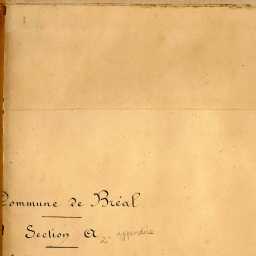 Commune de Bréal
Section A 2e appendice